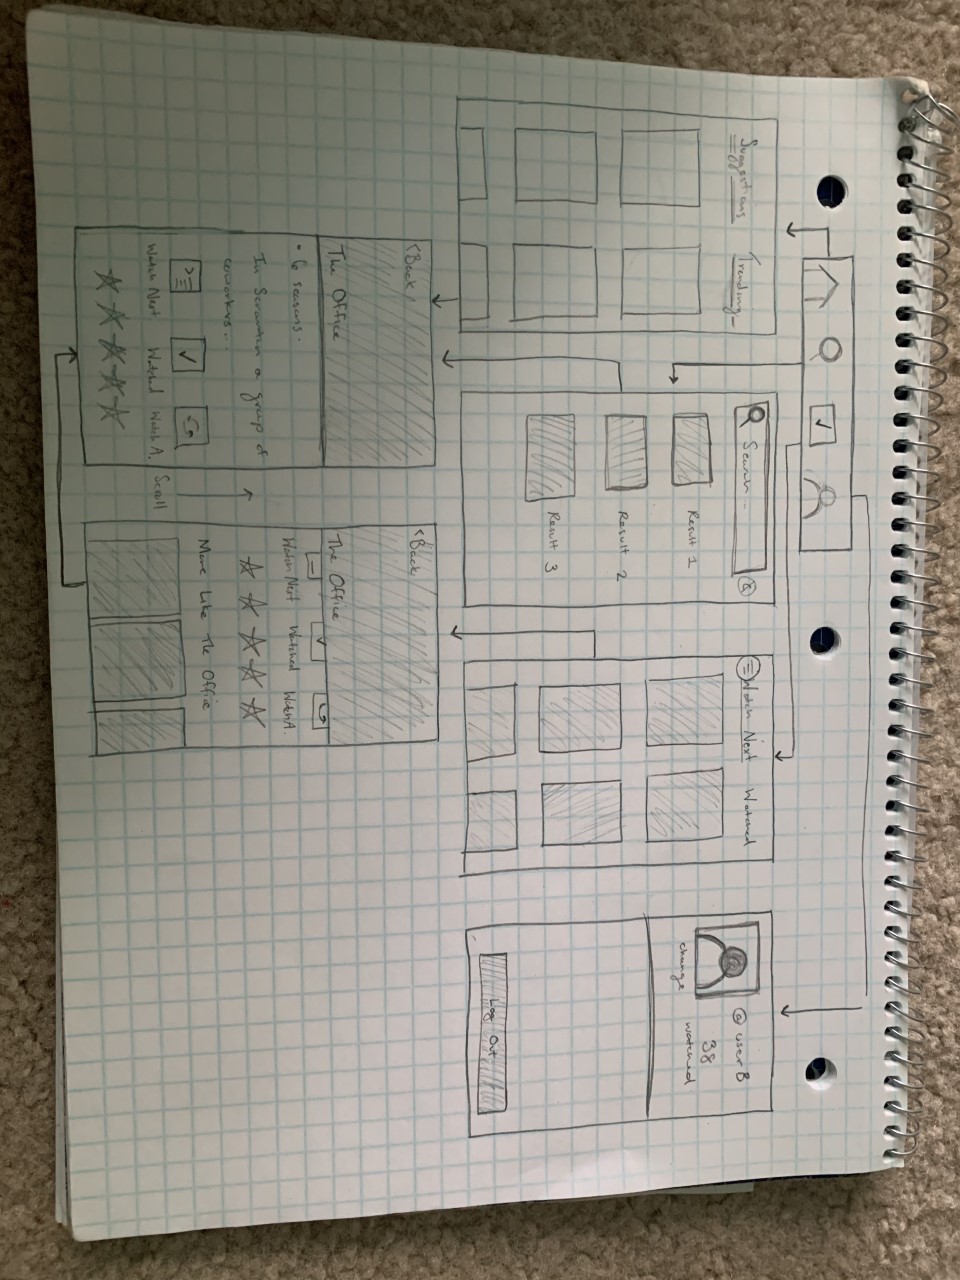 Suggestions Trending
Search...
Result 1
Result 2
Result 3
Watch Next Watched
@ user B
38
watched
change
Log Out
<Back
The Office
• 6 seasons.
In Scranton a group of
coworkers...
Watch Next Watched Watch A.
Scroll
<Back
The Office
Watch Next Watched Watch A.
More Like The Office